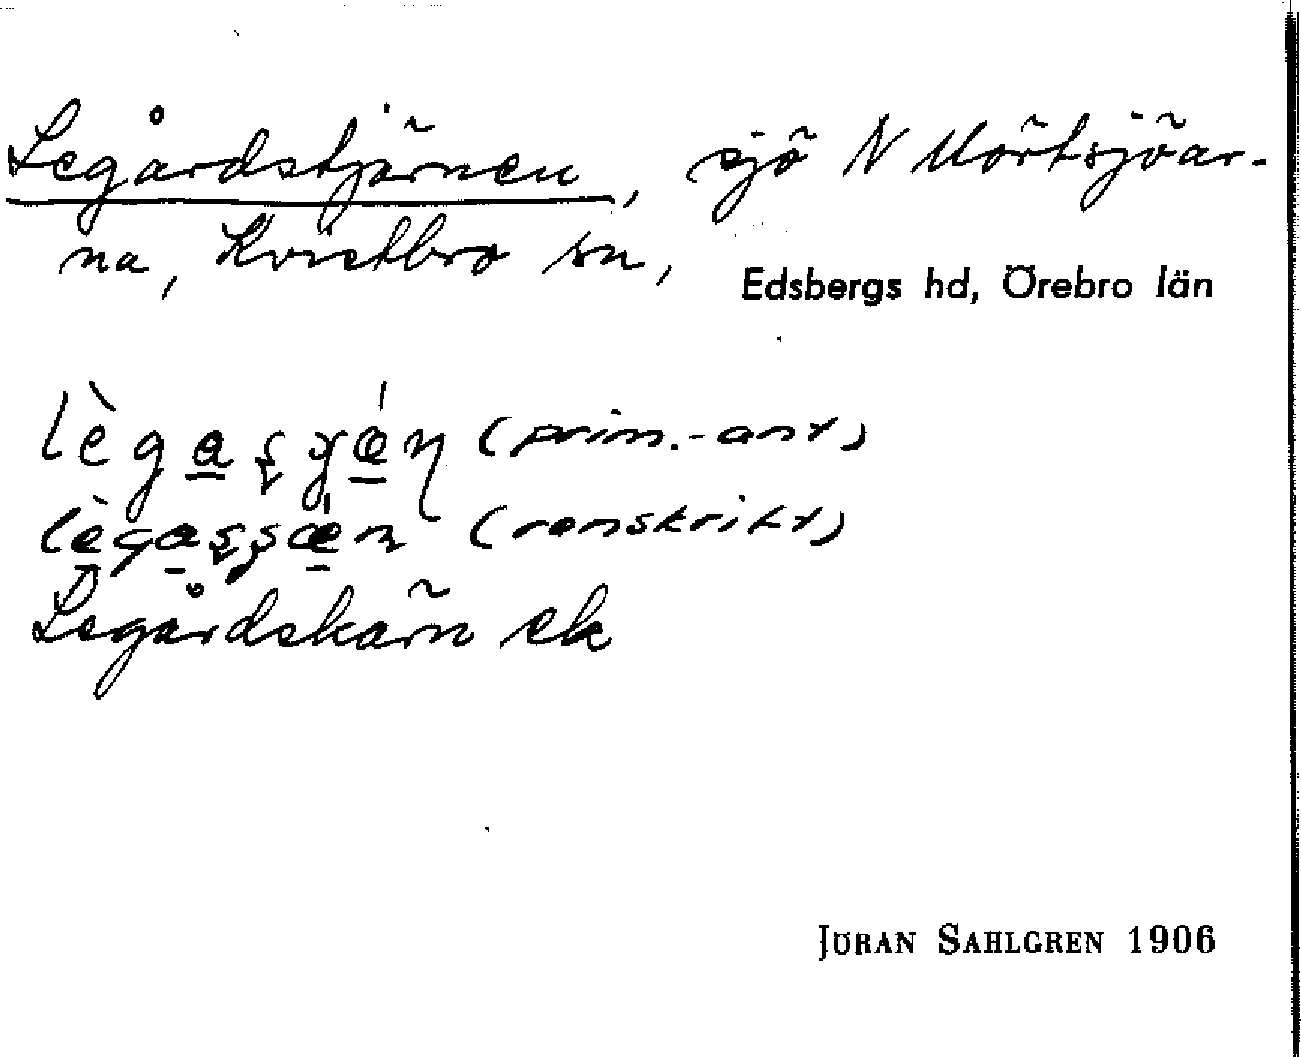 Legårdstjärnen, sjö N Mörtsjöar-
na, Kvistbro sn,
Edsbergs hd, Örebro län
(prim.-ant)
(renskrikt)
Legårdskärn ek
JÖRAN SAHLGREN 1906